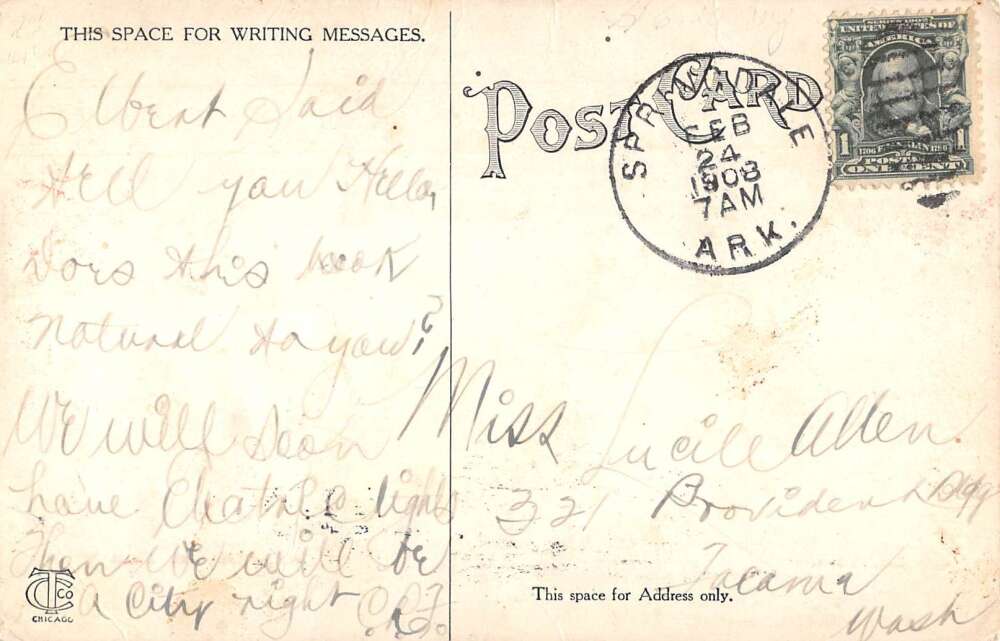 THIS SPACE FOR WRITING MESSAGES.
Elbert Said
tell you Hello,
Does this look
natural to you?
We will soon
have Electric lights
then we will be
a City right C.A.F.
CTCO
CHICAGO
POST CARD
SPRINGDALE
FEB
24
1908
7AM
ARK.
SERIES 1902
UNITED STATES OF
AMERICA
1 1
1706 FRANKLIN 1790
POSTAGE
ONE CENT
Miss Lucile Allen
321 Provident Bldg
Tacoma
Wash
This space for Address only.